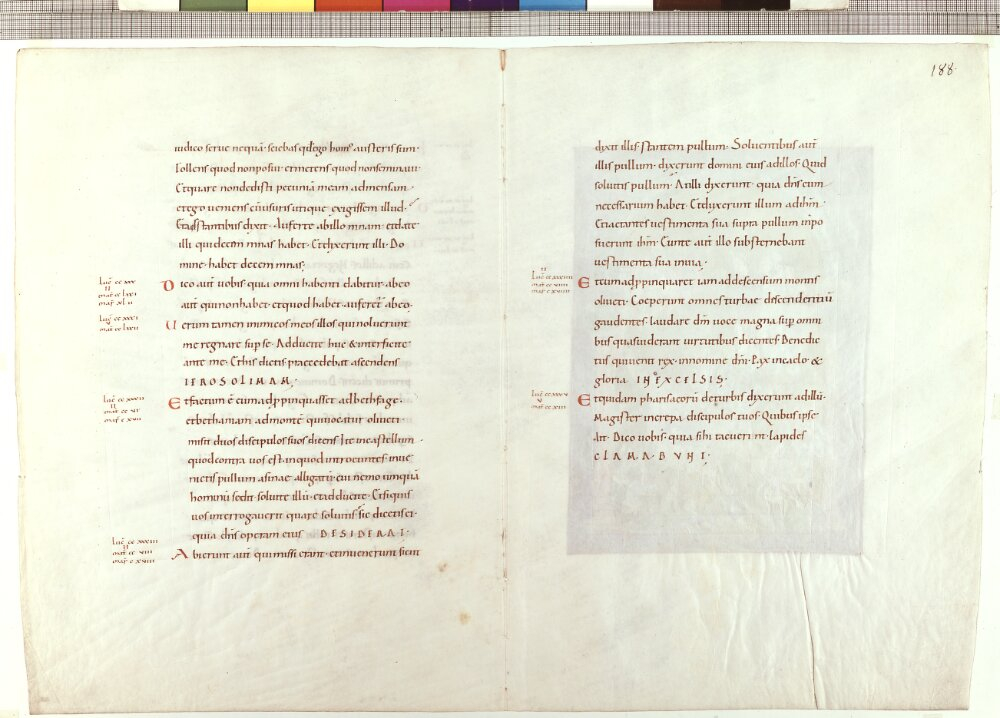 iudico serue nequā· sciebas qd ego homo austeris sum·
Tollens quod non posui· et metens quod non seminaui·
Et quare non dedisti pecuniā meam ad mensam·
et ego ueniens cū usuris utique exigissem illud·
Et adstantibus dixit· Auferte ab illo mnam· et date
illi qui decem mnas habet· Et dixerunt illi· Do
mine· habet decem mnas·
Dico aut̄ uobis quia omni habenti dabitur· ab eo
aut̄ qui non habet· et quod habet· auferet̄ ab eo·
Uerum tamen inimicos meos illos qui noluerunt
me regnare sup se· Adducite huc & interficite
ante me· Et his dictis praecedebat ascendens
IEROSOLIMAM·
Et factum ē cum adpinquasset ad bethfage·
et bethaniam ad montē qui uocatur oliueti·
misit duos discipulos suos dicens· Ite in castellum
quod contra uos est· in quod introeuntes· inue
nietis pullum asinae alligatū· cui nemo umquā
hominū sedit· soluite illū· et adducite· Et si quis
uos interrogauerit quare soluitis· sic dicetis ei·
quia dn̄s operam eius DESIDERAT·
Abierunt aut̄ qui missi erant· et inuenerunt sicut
188·
dixit illis· stantem pullum· Soluentibus aut̄
illis pullum· dixerunt domini eius ad illos· Quid
soluitis pullum· At illi dixerunt· quia dn̄s eum
necessarium habet· Et duxerunt illum ad ihm̄·
Et iactantes uestimenta sua supra pullum inpo
suerunt ihm̄· Eunte aut̄ illo substernebant
uestimenta sua in uia·
Et cum adppinquaret iam ad descensum montis
oliueti· Coeperunt omnes turbae discendentiū
gaudentes· laudare dm̄ uoce magna sup omni
bus quas uiderant uirtutibus dicentes· Benedic
tus qui uenit rex· in nomine dn̄i· Pax in caelo· &
gloria IN EXCELSIS·
Et quidam pharisaeorū de turbis dixerunt ad illū·
Magister increpa discipulos tuos· Quibus ipse
Ait· Dico uobis· quia si hi tacuerint· lapides
CLAMABUNT·